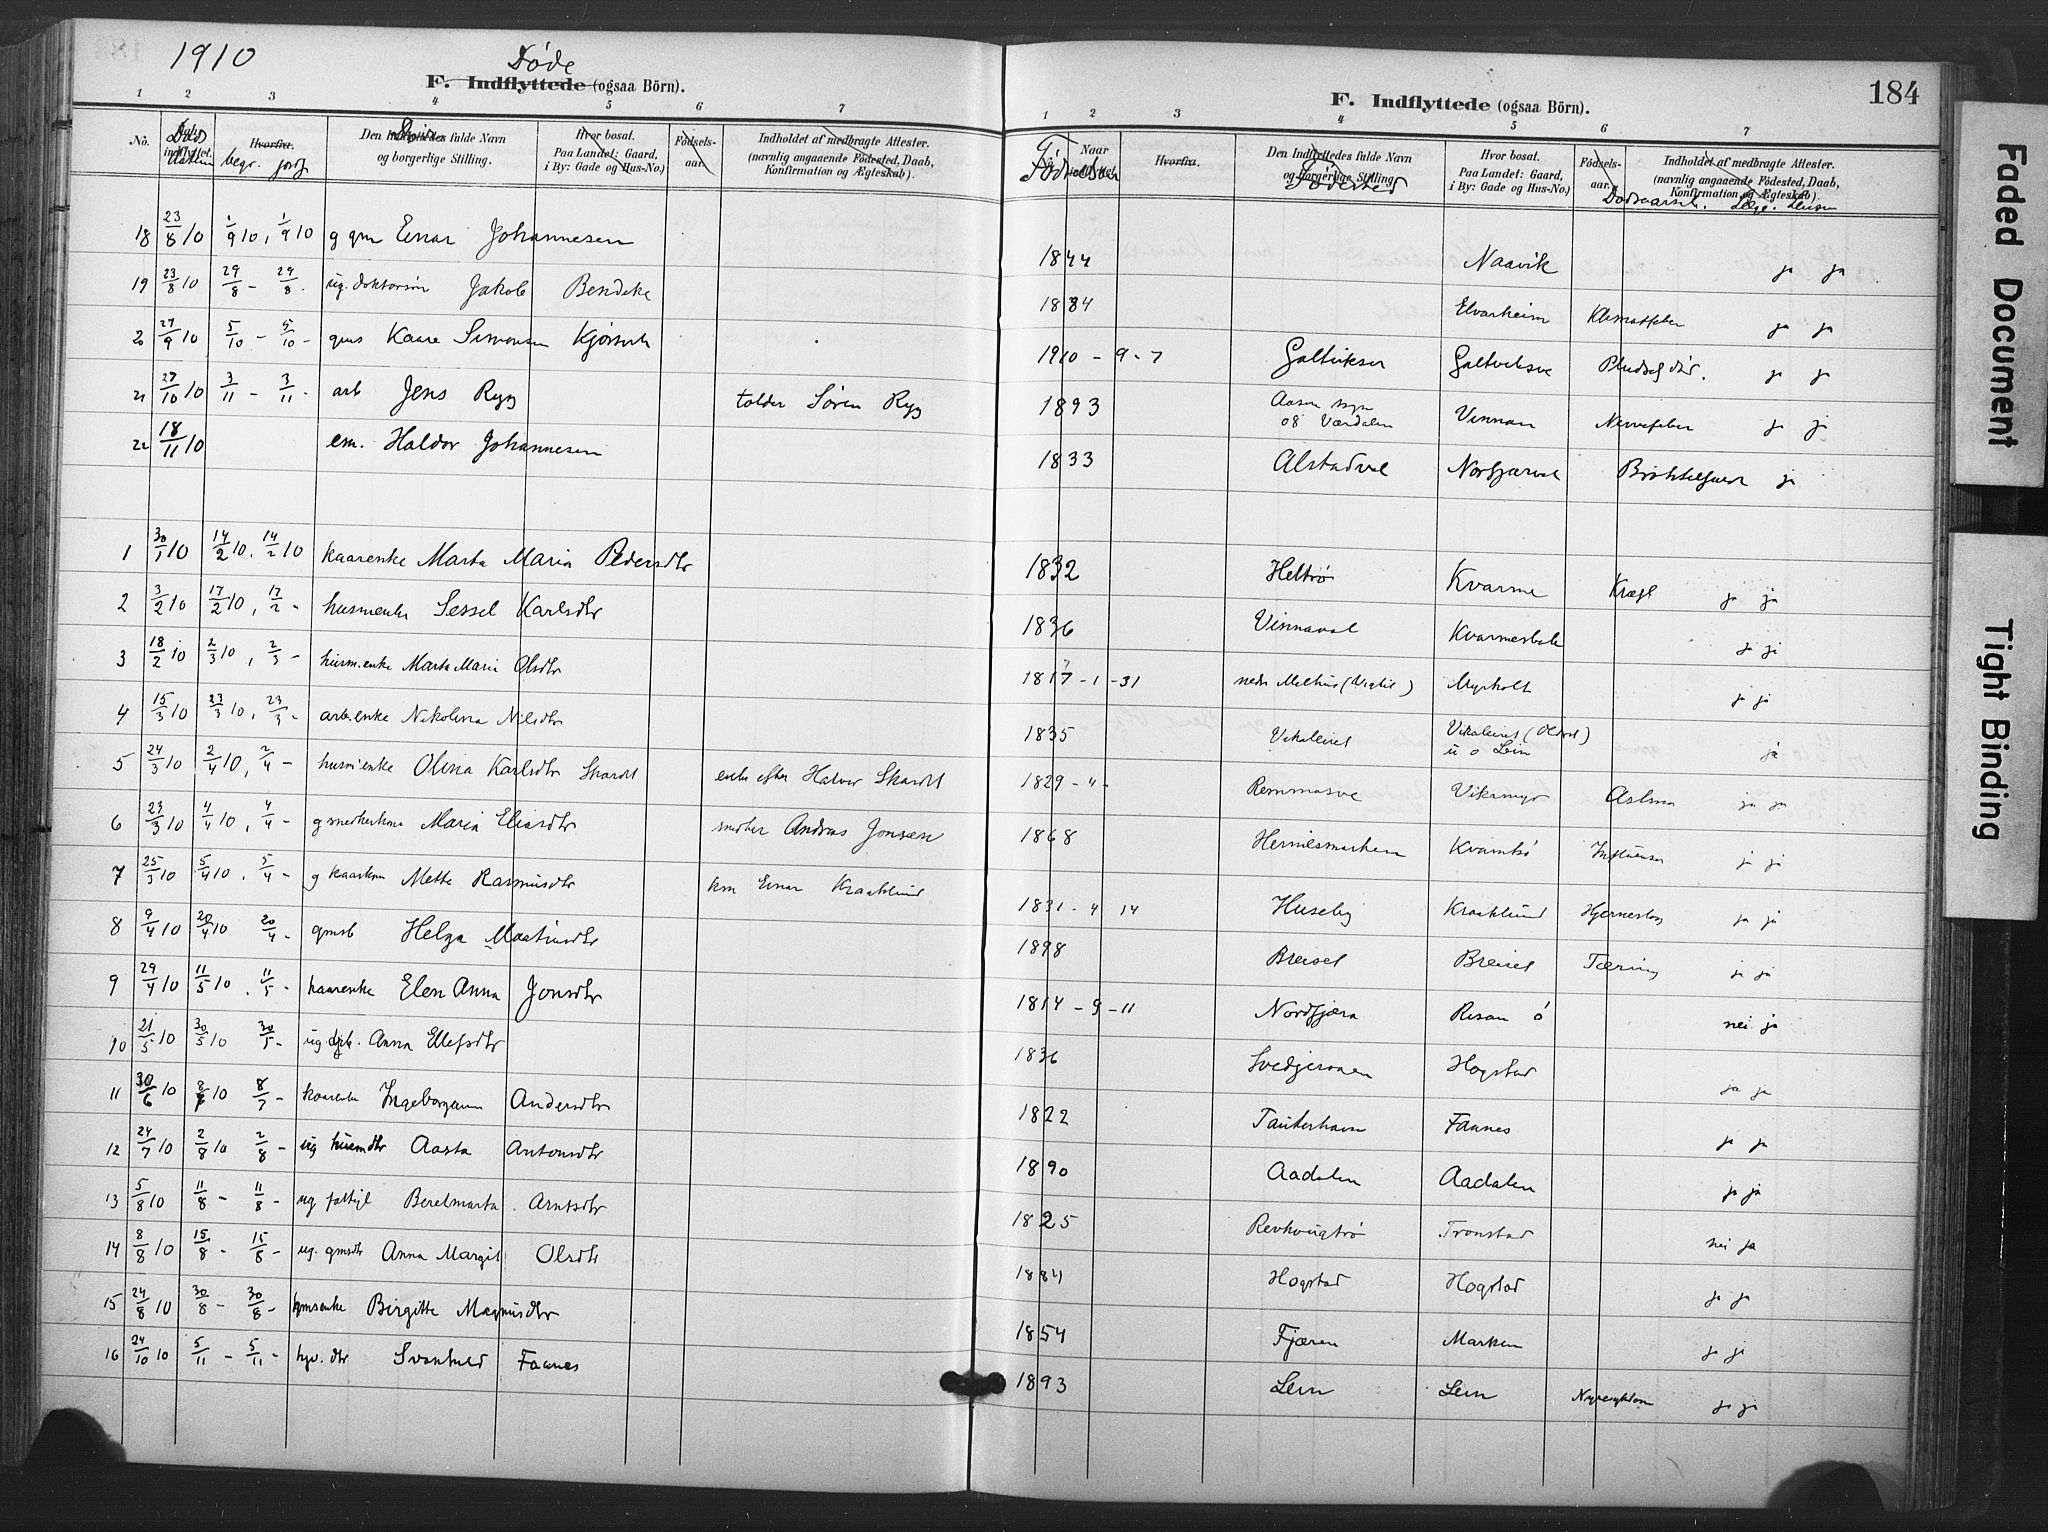 1910
Døde
F. Indflyttede (ogsaa Börn).
1 2 3 4 5 6 7
No. Døds indflyttet. Hvorfra. begr. jordf Den Indflyttedes fulde Navn og borgerlige Stilling. Hvor bosat. Paa Landet: Gaard, i By: Gade og Hus-No.) Födsels-aar. Indholdet af medbragte Attester. (navnlig angaaende Födested, Daab, Konfirmation og Ægteskab).
18 23/8 10 1/9 10, 1/9 10 g gm Einar Johannesen
19 23/8 10 29/8 - 29/8. ug. doktorsøn Jakob Bendeke
20 27/9 10 5/10 - 5/10 - gms Kaare Simonsen
21 27/10 10 3/11 - 3/11 - arb Jens Ryg tolder Søren Ryg
22 18/11 10 em. Haldor Johannesen
1 30/1 10 14/2 10. 14/2 10 kaarenke Marta Maria Pedersdtr
2 3/2 10 17/2 10, 17/2 - husmenke Sessel Karlsdtr
3 18/2 10 2/3 10, 2/3 - husm.enke Marta Maria Olsdtr
4 15/3 10 23/3 10, 23/3 - arb.enke Nikolina Nilsdtr
5 24/3 10 2/4 10, 2/4 - husm'enke Olina Karlsdtr Skardt enke efter Halvor Skardt
6 23/3 10 4/4 10, 4/4 - g smedkerkone Maria Eliasdtr Andras Jonsen
7 25/3 10 5/4 10. 5/4 - g kaarkm Mette Rasmusdtr km Einar Kraaklund
8 9/4 10 20/4 10 20/4 - gmsb Helga Martinsdtr
9 29/4 10 11/5 10. 11/5 - kaarenke Elen Anna Jonsdtr
10 21/5 10 30/5 10 30/5 - ug Anna Ellefsdtr
11 30/6 10 8/7 10 8/7 - kaarenke Ingeborganna Andersdtr
12 24/7 10 2/8 10 2/8 - ug husmdtr Aasta Antonsdtr
13 5/8 10 11/8 - 11/8 - ug fattigl Beretmarta Arntsdtr
14 8/8 10 15/8 - 15/8 - ug. gmsdtr Anna Margit Olsdtr
15 24/8 10 30/8 - 30/8 - gmsenke Birgitte Magnusdtr
16 24/10 10 5/11 - 5/11 - dtr Svanhild Faanes
184
F. Indflyttede (ogsaa Börn).
1 2 3 4 5 6 7
Fødselsaar Naar Hvorfra. Den Indflyttedes fulde Navn og borgerlige Stilling. Fødested Hvor bosat. Paa Landet: Gaard, i By: Gade og Hus-No.) Födsels-aar. Dødsaarsak. Indholdet af medbragte Attester. (navnlig angaaende Födested, Daab, Konfirmation og Ægteskab).
1844 Naavik ja ja
1884 Elvarheim ja ja
1910 - 9 - 7 ja ja
1893 Aasen sogn og Værdalen Vinnan Nervefeber ja ja
1833 Alstadval ja
1832 Heltrø Kvarme Kræft ja ja
1836 Vinnaval Kvarmesbak ja ja
1817 - 1 - 31 Myrholt ja ja
1835 Vikaleiret Vikaleiret u o Lein ja
1829 - 4 - Remmasve Vikamyr Astma ja ja
1868 Kvamtrø Influensa ja ja
1831 - 4 14 Huseby Kraaklund ja ja
1898 Breivel Breivel Tæring ja ja
1814 - 9 - 11 Nordfjæra Risan ø nei ja
1836 Hogstad ja ja
1822 Tauterhavn Faanes ja ja
1890 Aadalen Aadalen ja ja
1825 Tronstad nei ja
1884 Hogstad Hogstad ja ja
1854 Fjæren Marken ja ja
1893 Lein Lein Nyresykdom ja ja
Faded Document
Tight Binding